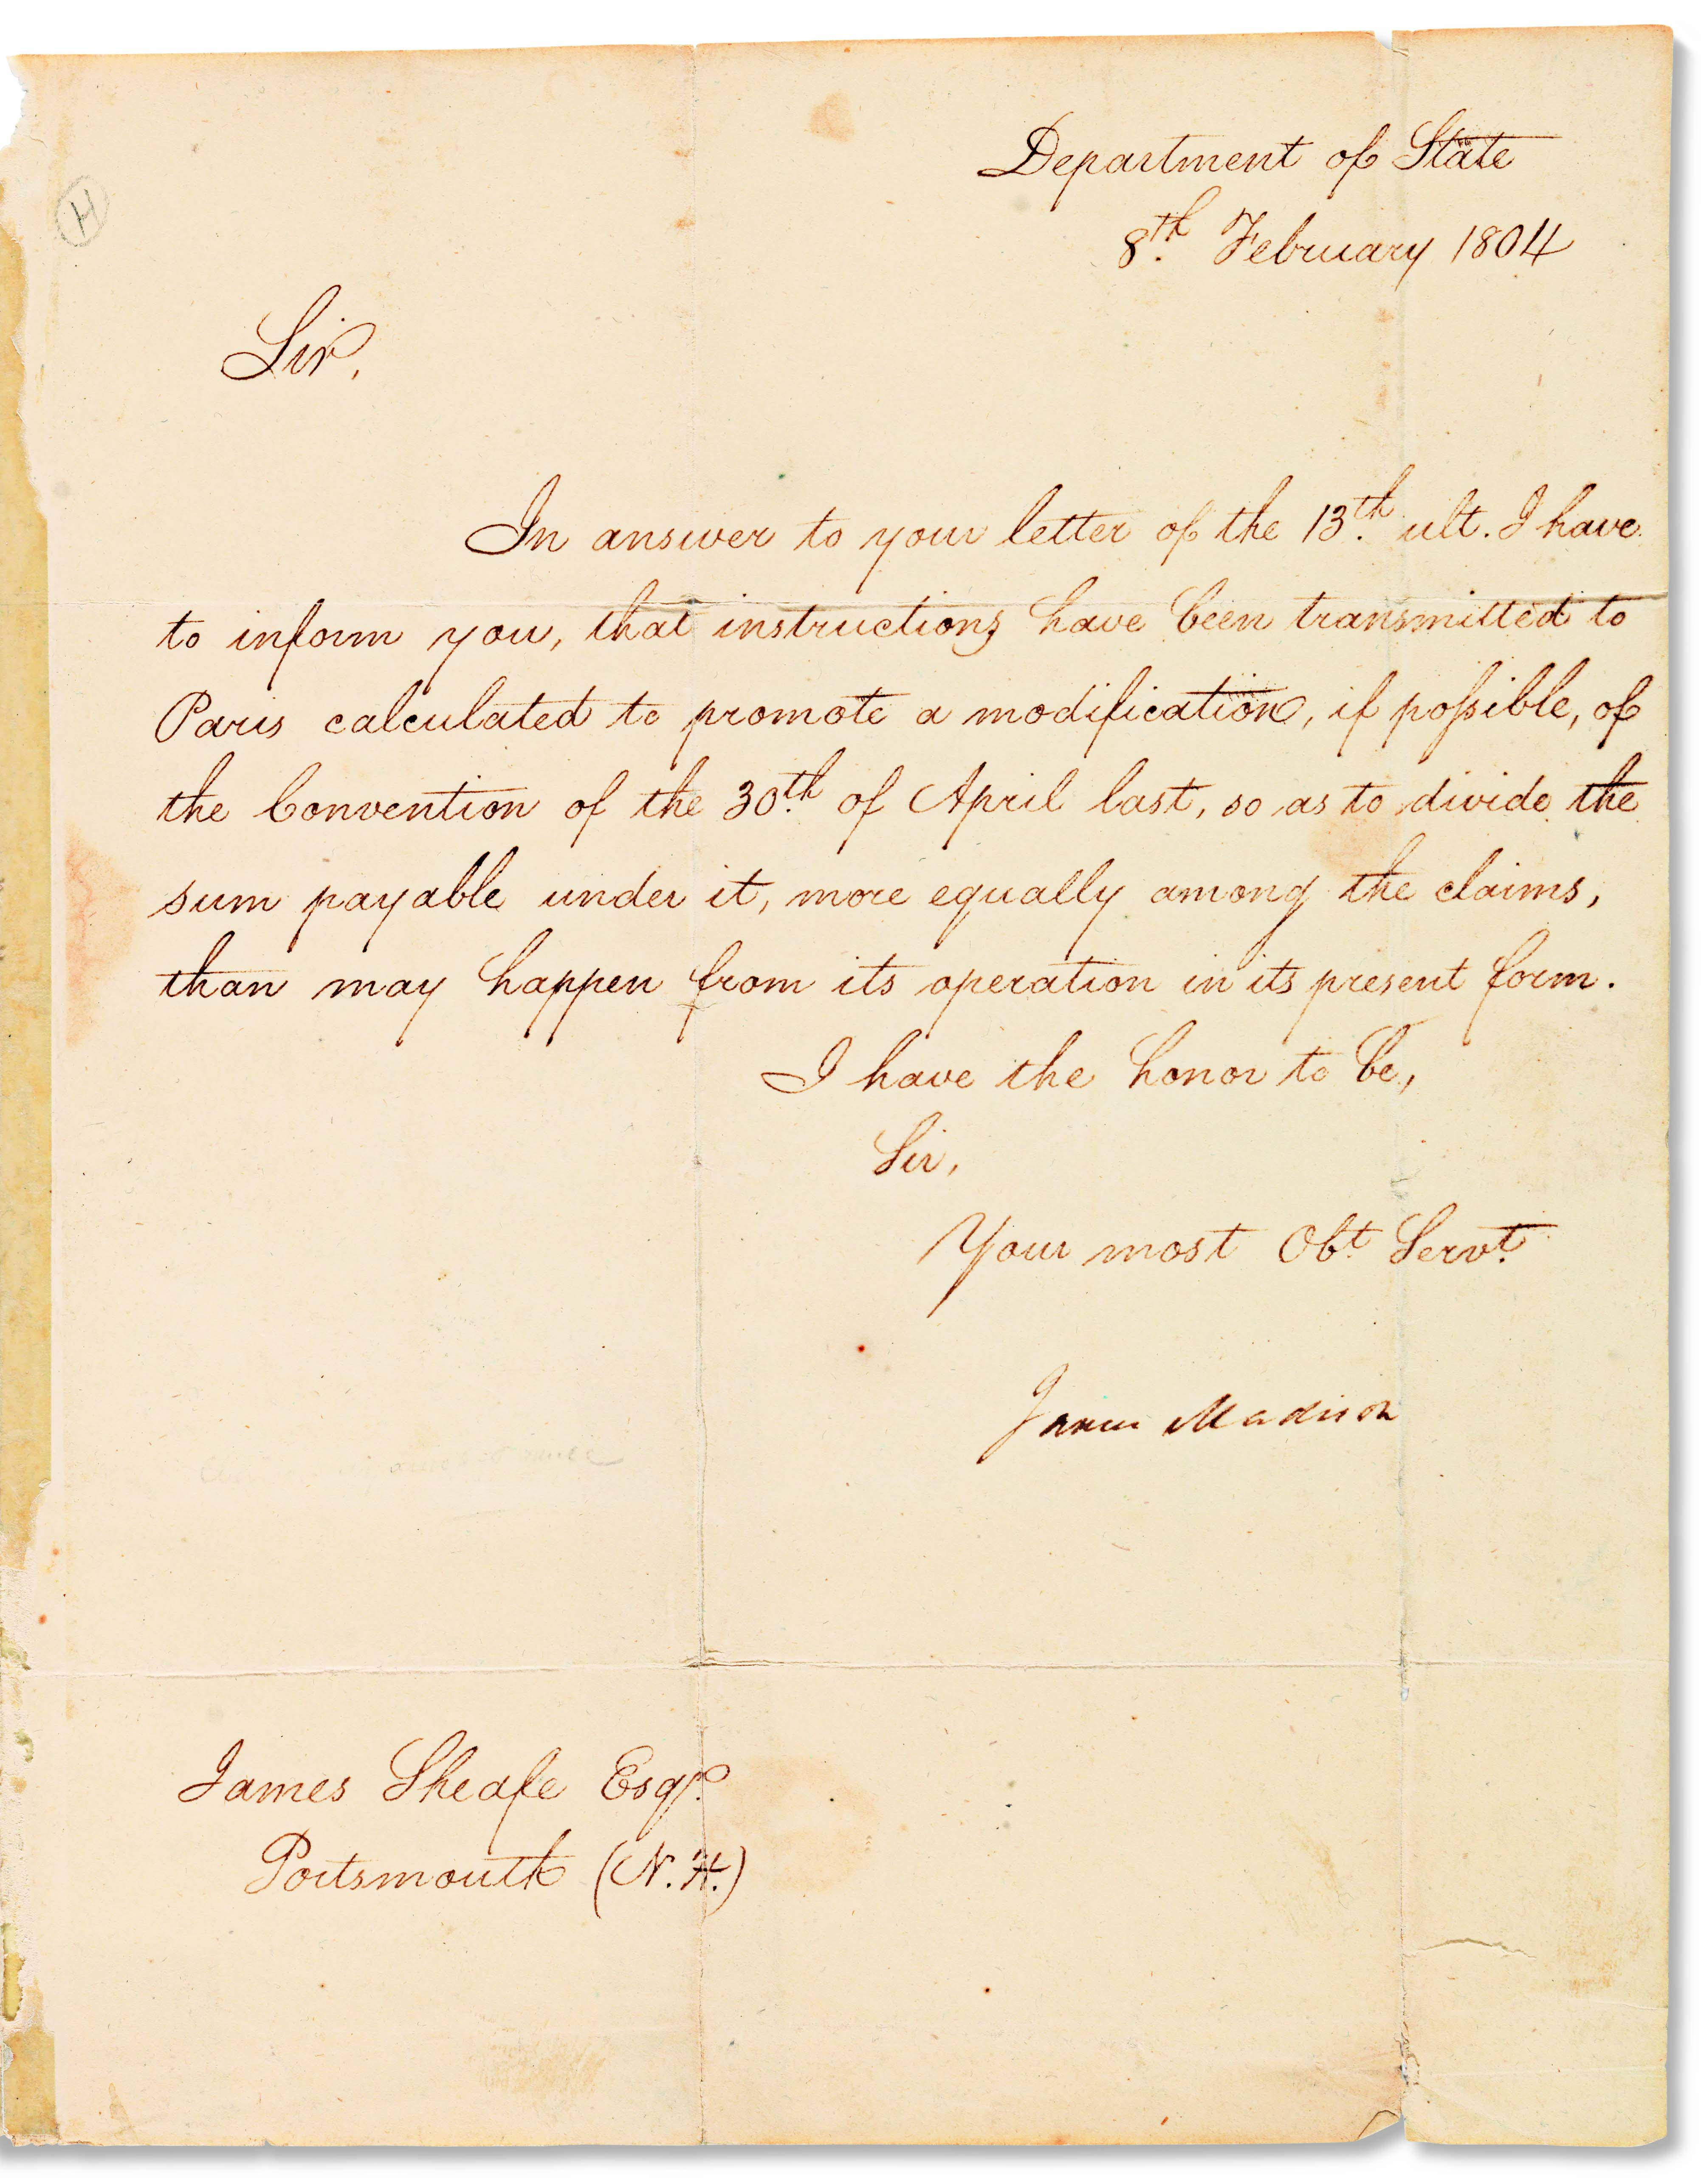 H
Department of State
8th. February 1804
Sir,
In answer to your letter of the 13th. ult. I have
to inform you, that instructions have been transmitted to
Paris calculated to promote a modification, if possible, of
the Convention of the 30th. of April last, so as to divide the
sum payable under it, more equally among the claims,
than may happen from its operation in its present form.
I have the honor to be,
Sir,
Your most Obt. Servt.
James Madison
James Sheafe Esqr.
Portsmouth (N.H.)